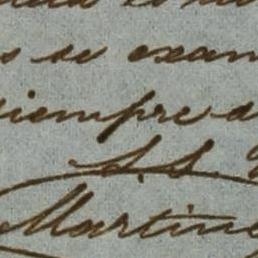 s se exam
siempre a
S. S.
Martine